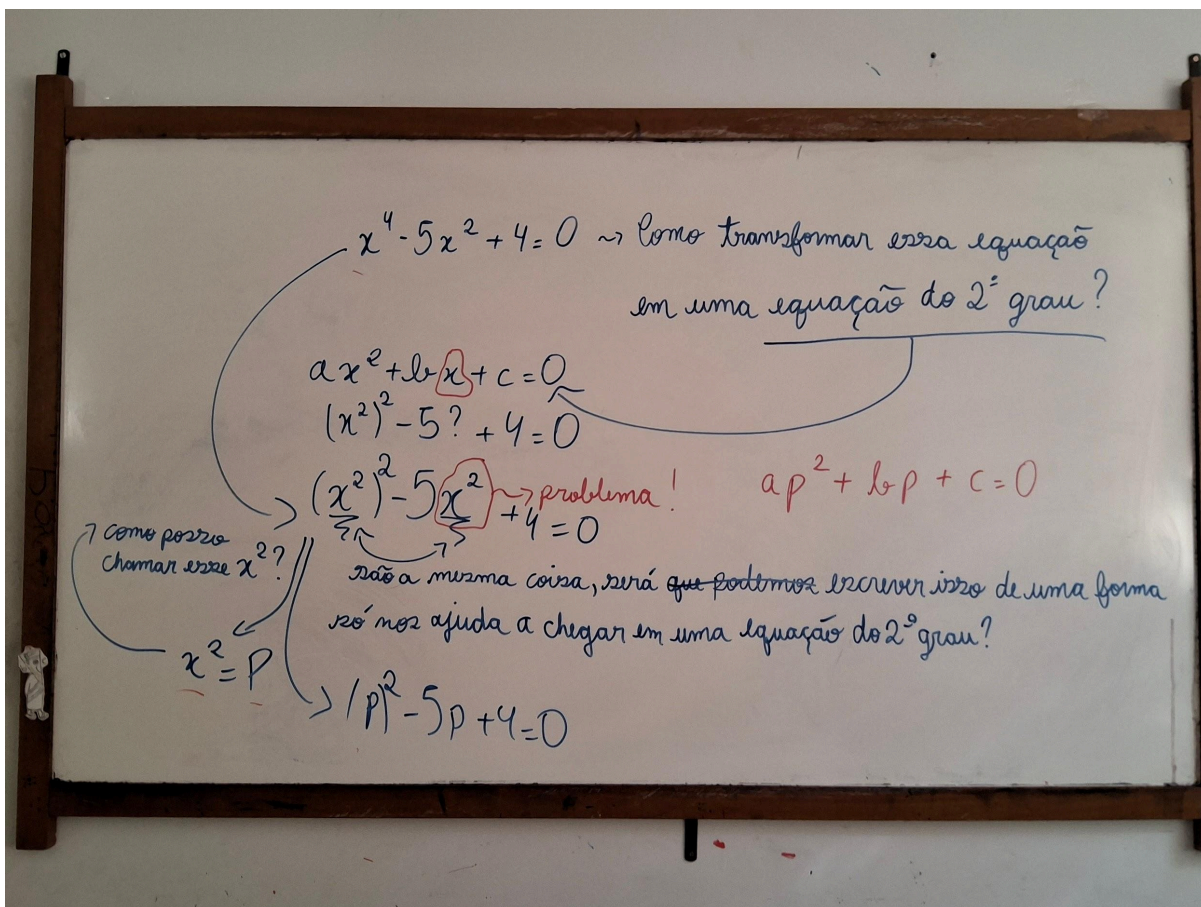 x⁴ - 5x² + 4 = 0 ~> Como transformar essa equação
em uma equação do 2º grau?
ax² + bx + c = 0
(x²)² - 5? + 4 = 0
(x²)² - 5x² ~> problema! + 4 = 0
ap² + bp + c = 0
como posso
chamar esse x²?
são a mesma coisa, será que podemos escrever isso de uma forma
só nos ajuda a chegar em uma equação do 2º grau?
x² = P
(p)² - 5p + 4 = 0